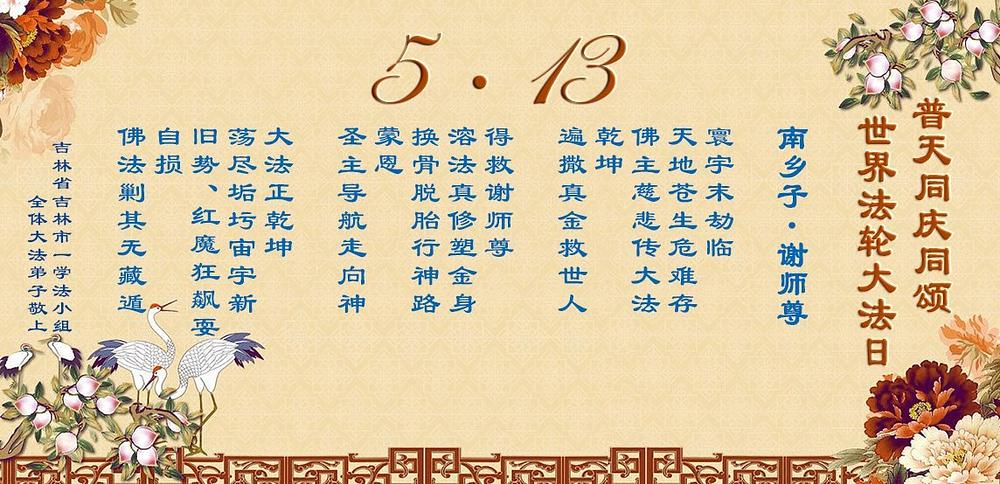 5·13
普天同庆同颂
世界法轮大法日
南乡子·谢师尊
寰宇末劫临
天地苍生危难存
佛主慈悲传大法
乾坤
遍撒真金救世人
得救谢师尊
溶法真修塑金身
换骨脱胎行神路
蒙恩
圣主导航走向神
大法正乾坤
荡尽垢圬宙宇新
旧势、红魔狂飙耍
自损
佛法剿其无藏遁
吉林省吉林市一学法小组
全体大法弟子敬上